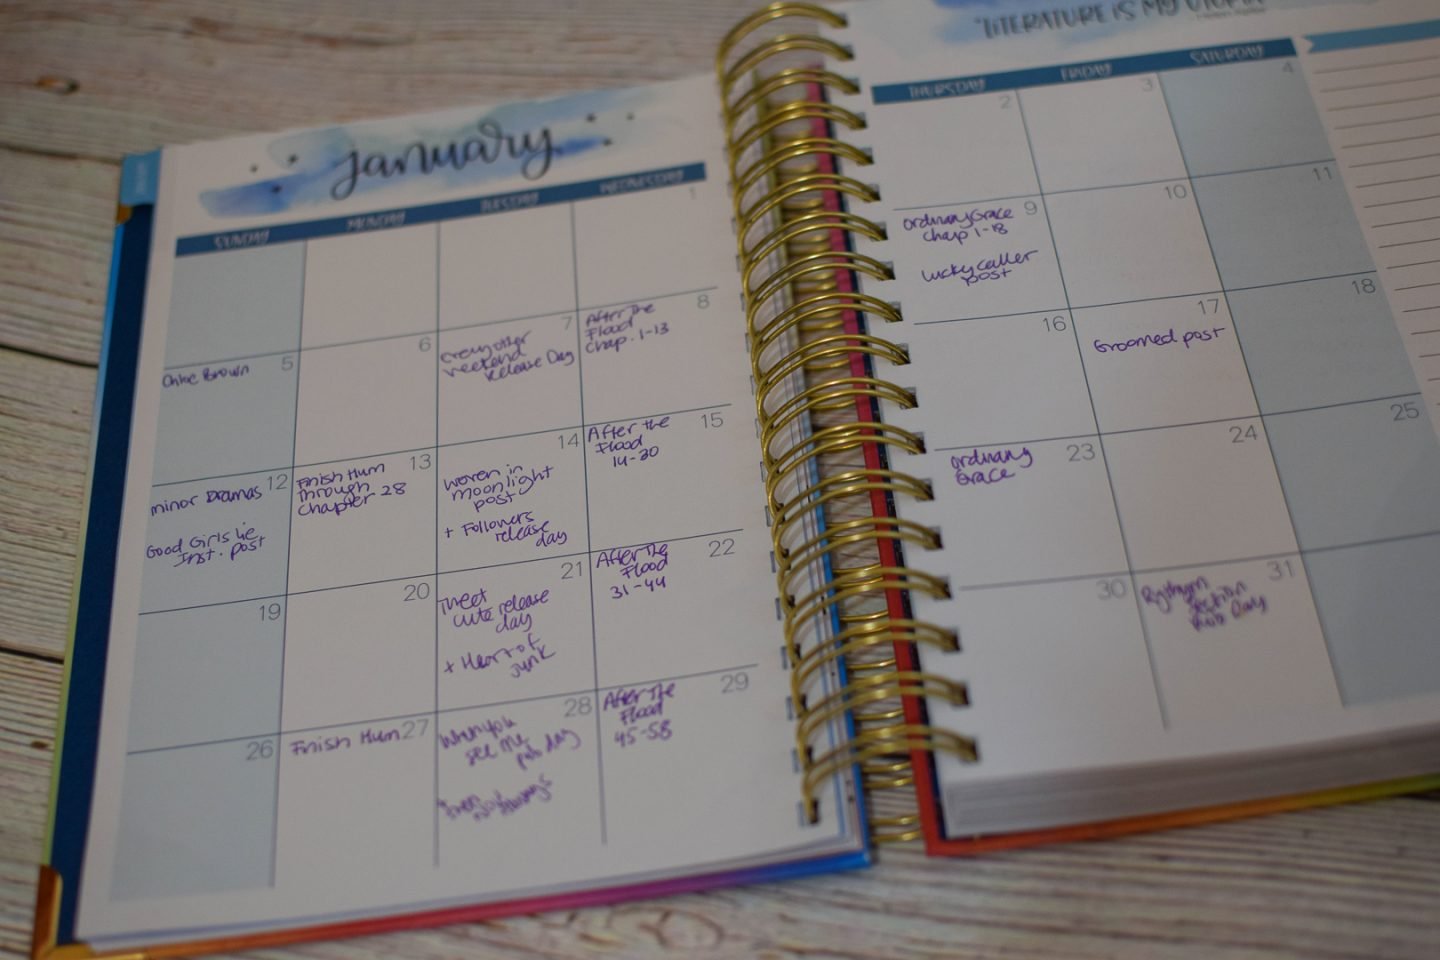 january
"LITERATURE IS MY UTOPIA"
SUNDAY
MONDAY
TUESDAY
WEDNESDAY
THURSDAY
FRIDAY
SATURDAY
1
2
3
4
5
Chloe Brown
6
7
Every other
weekend
Release Day
8
After the
Flood
Chap. 1-13
9
Ordinary Grace
Chap 1-18
Lucky Caller
post
10
11
12
minor Dramas
Good Girls lie
Inst. post
13
Finish Hum
through
Chapter 28
14
Woven in
moonlight
post
+ Followers
release
day
15
After the
Flood
14-30
16
17
Groomed post
18
19
20
21
Meet
cute release
day
+ Heart of
Junk
22
After the
Flood
31-44
23
Ordinary
Grace
24
25
26
27
Finish Hum
28
When you
see me
pub day
29
After The
Flood
45-58
30
31